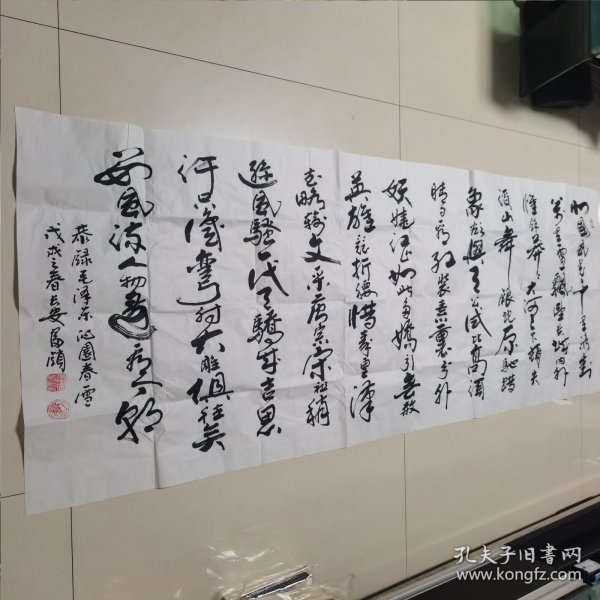 北国风光千里冰封
万里雪飘望长城内外
惟余莽莽大河上下顿失
滔滔山舞银蛇原驰蜡
象欲与天公试比高须
晴日看红装素裹分外
妖娆江山如此多娇引无数
英雄竞折腰惜秦皇汉
武略输文采唐宗宋祖稍
逊风骚一代天骄成吉思
汗只识弯弓射大雕俱往矣
数风流人物还看今朝
恭录毛泽东沁园春雪
戊戌之春长安
孔夫子旧书网
www.kongfz.com